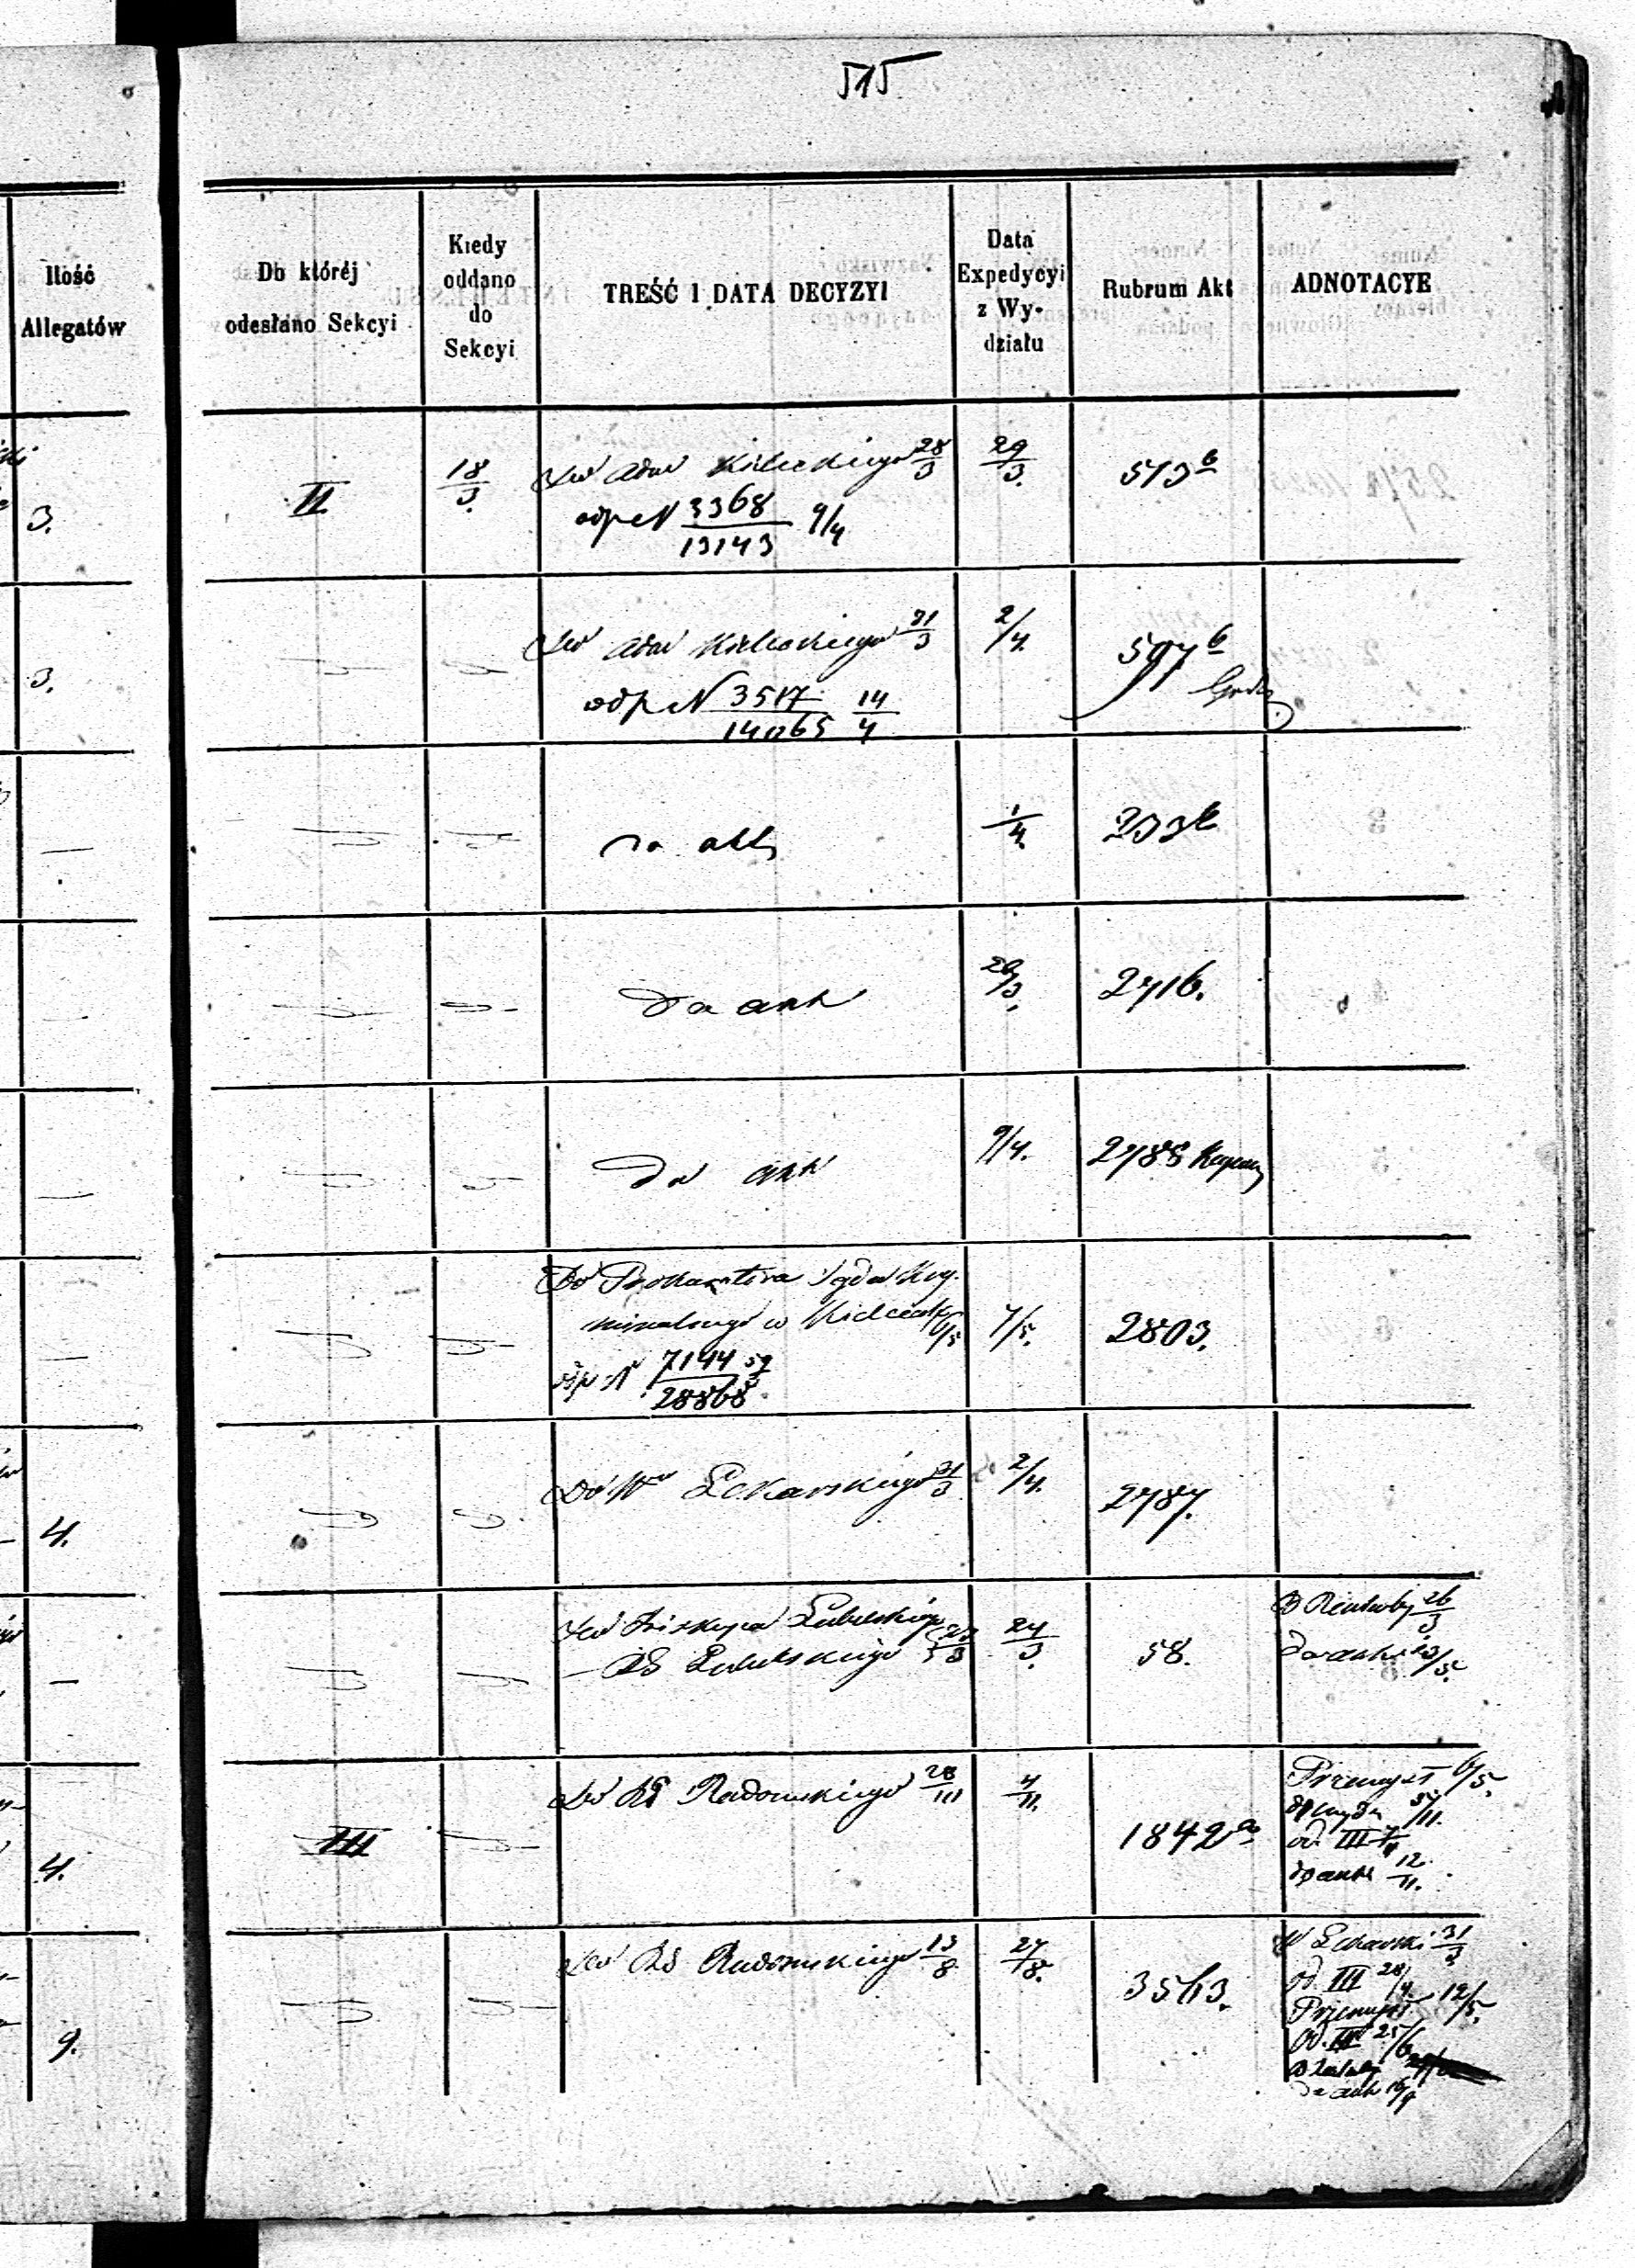 515
Ilość
Allegatów
Do któréj
odesłano Sekcyi
Kiedy
oddano
do
Sekcyi
TREŚĆ I DATA DECYZYI
Data
Expedycyi
z Wy-
działu
Rubrum Akt
ADNOTACYE
3.
II
18/3.
Do Adm Kieleckiego 28/3
29/3.
513 b
odp N 3368/13143 9/4
3.
Do Adm Kieleckiego 31/3
2/4.
597 b
odp N 3517/14065 14/4
—
Do akt
1/4.
233 b
Do akt
29/3.
2716.
—
Do akt
9/4.
2788
—
Do Prokuratora Sądu Kry-
minalnego w Kielcach 6/5
7/5.
2803.
odp N 7144/28868
4.
Do Lekarskiego 31/3
2/4.
2787.
—
Do Biskupa Lubelskiego
— RG Lubelskiego 23/3
24/3.
58.
26/3
Do akt 23/5.
4.
III
Do RG Radomskiego 28/III
4/11.
1842 a
Przemysł 6/5.
od III
Do akt 12/11.
9.
Do RG Radomskiego 13/8
27/8.
3563.
W Lekarski 31/3
od III 28/4
Przemysł 12/5.
Od. III 25/6
Do akt 16/9